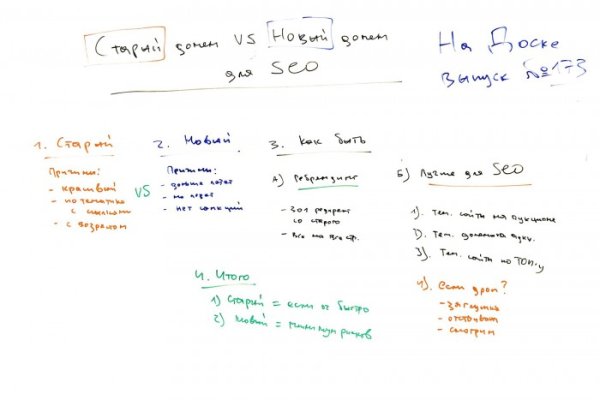 Старый домен VS Новый домен
для SEO
На Доске
выпуск №173
1. Старый
Причины:
- красивый
- по тематике
с ссылками
- с возрастом
VS
2. Новый
Причины:
- дольше
- не
- нет санкций
3. Как быть
А) Ребрендинг
- 301 редирект
со старого
- все на все стр.
Б) Лучше для SEO
1). Тем. сайты на аукционе
2). Тем. домены аукц.
3). Тем. сайты по ТОП-у
4) если дроп?
- загружаем
- отстаиваем
- смотрим
4. Итого
1) Старый = если оч быстро
2) Новый = минимум рисков